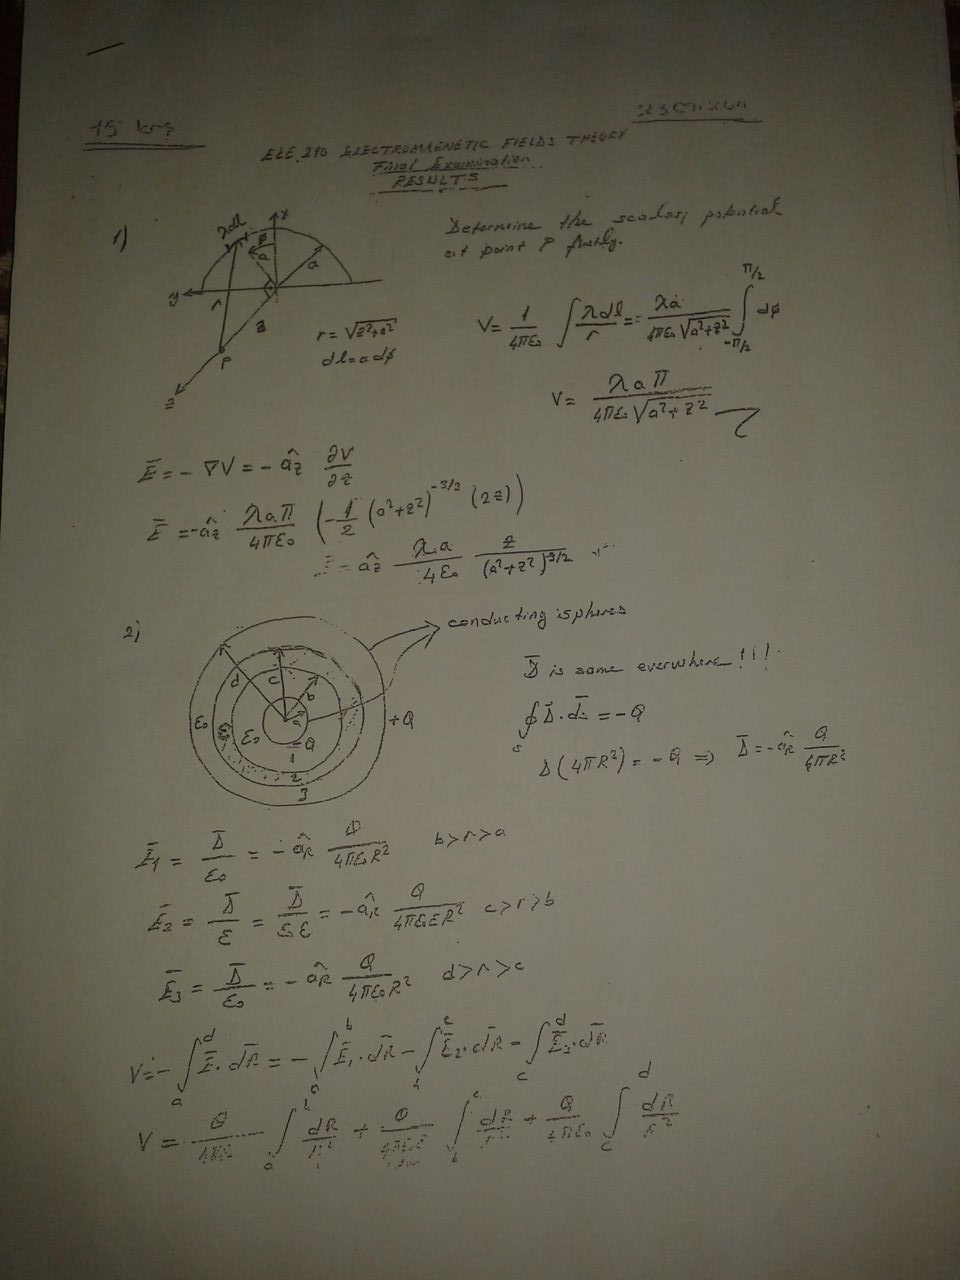 ELE 210 ELECTROMAGNETIC FIELDS THEORY
Final Examination
RESULTS
1)
Determine the scalar potential
at point P firstly.
λdl
x
φ
a
a
y
r
z
P
z
r = √z²+a²
dl = a dφ
V = 1/4πε₀ ∫ λdl/r = λa/4πε₀√a²+z² ∫_{-π/2}^{π/2} dφ
V = λaπ/4πε₀√a²+z²
Ē = - ∇V = - âz ∂V/∂z
Ē = - âz λaπ/4πε₀ (-1/2 (a²+z²)^{-3/2} (2z))
Ē = âz λa/4ε₀ z/(a²+z²)^{3/2}
2)
conducting spheres
d c b a
ε₀ ε ε₀ -Q +Q
1
2
3
D̄ is same everwhere!!!
∮_s D̄·ds̄ = -Q
D(4πR²) = -Q ⇒ D̄ = -âR Q/4πR²
Ē₁ = D̄/ε₀ = - âR Q/4πε₀R² b>r>a
Ē₂ = D̄/ε = D̄/ε₀ε = -âR Q/4πε₀εR² c>r>b
Ē₃ = D̄/ε₀ = - âR Q/4πε₀R² d>r>c
V = - ∫_a^d Ē·dR̄ = - ∫_a^b Ē₁·dR̄ - ∫_b^c Ē₂·dR̄ - ∫_c^d Ē₃·dR̄
V = Q/4πε₀ ∫_a^b dR/R² + Q/4πε₀ε ∫_b^c dR/R² + Q/4πε₀ ∫_c^d dR/R²